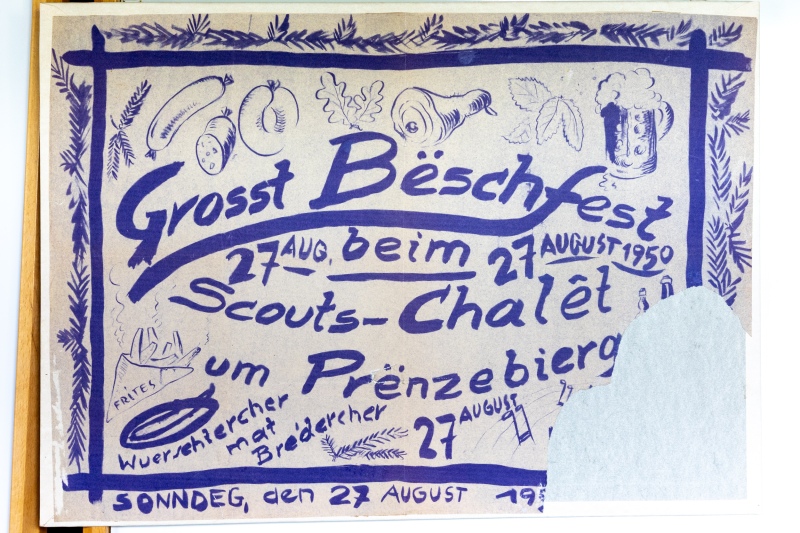 Grosst Bëschfest
27 AUG. beim 27 AUGUST 1950
Scouts-Chalêt
um Prënzebierg
FRITES
Wuerschtercher
mat
Brédercher
27 AUGUST
SONNDEG, den 27 AUGUST 195